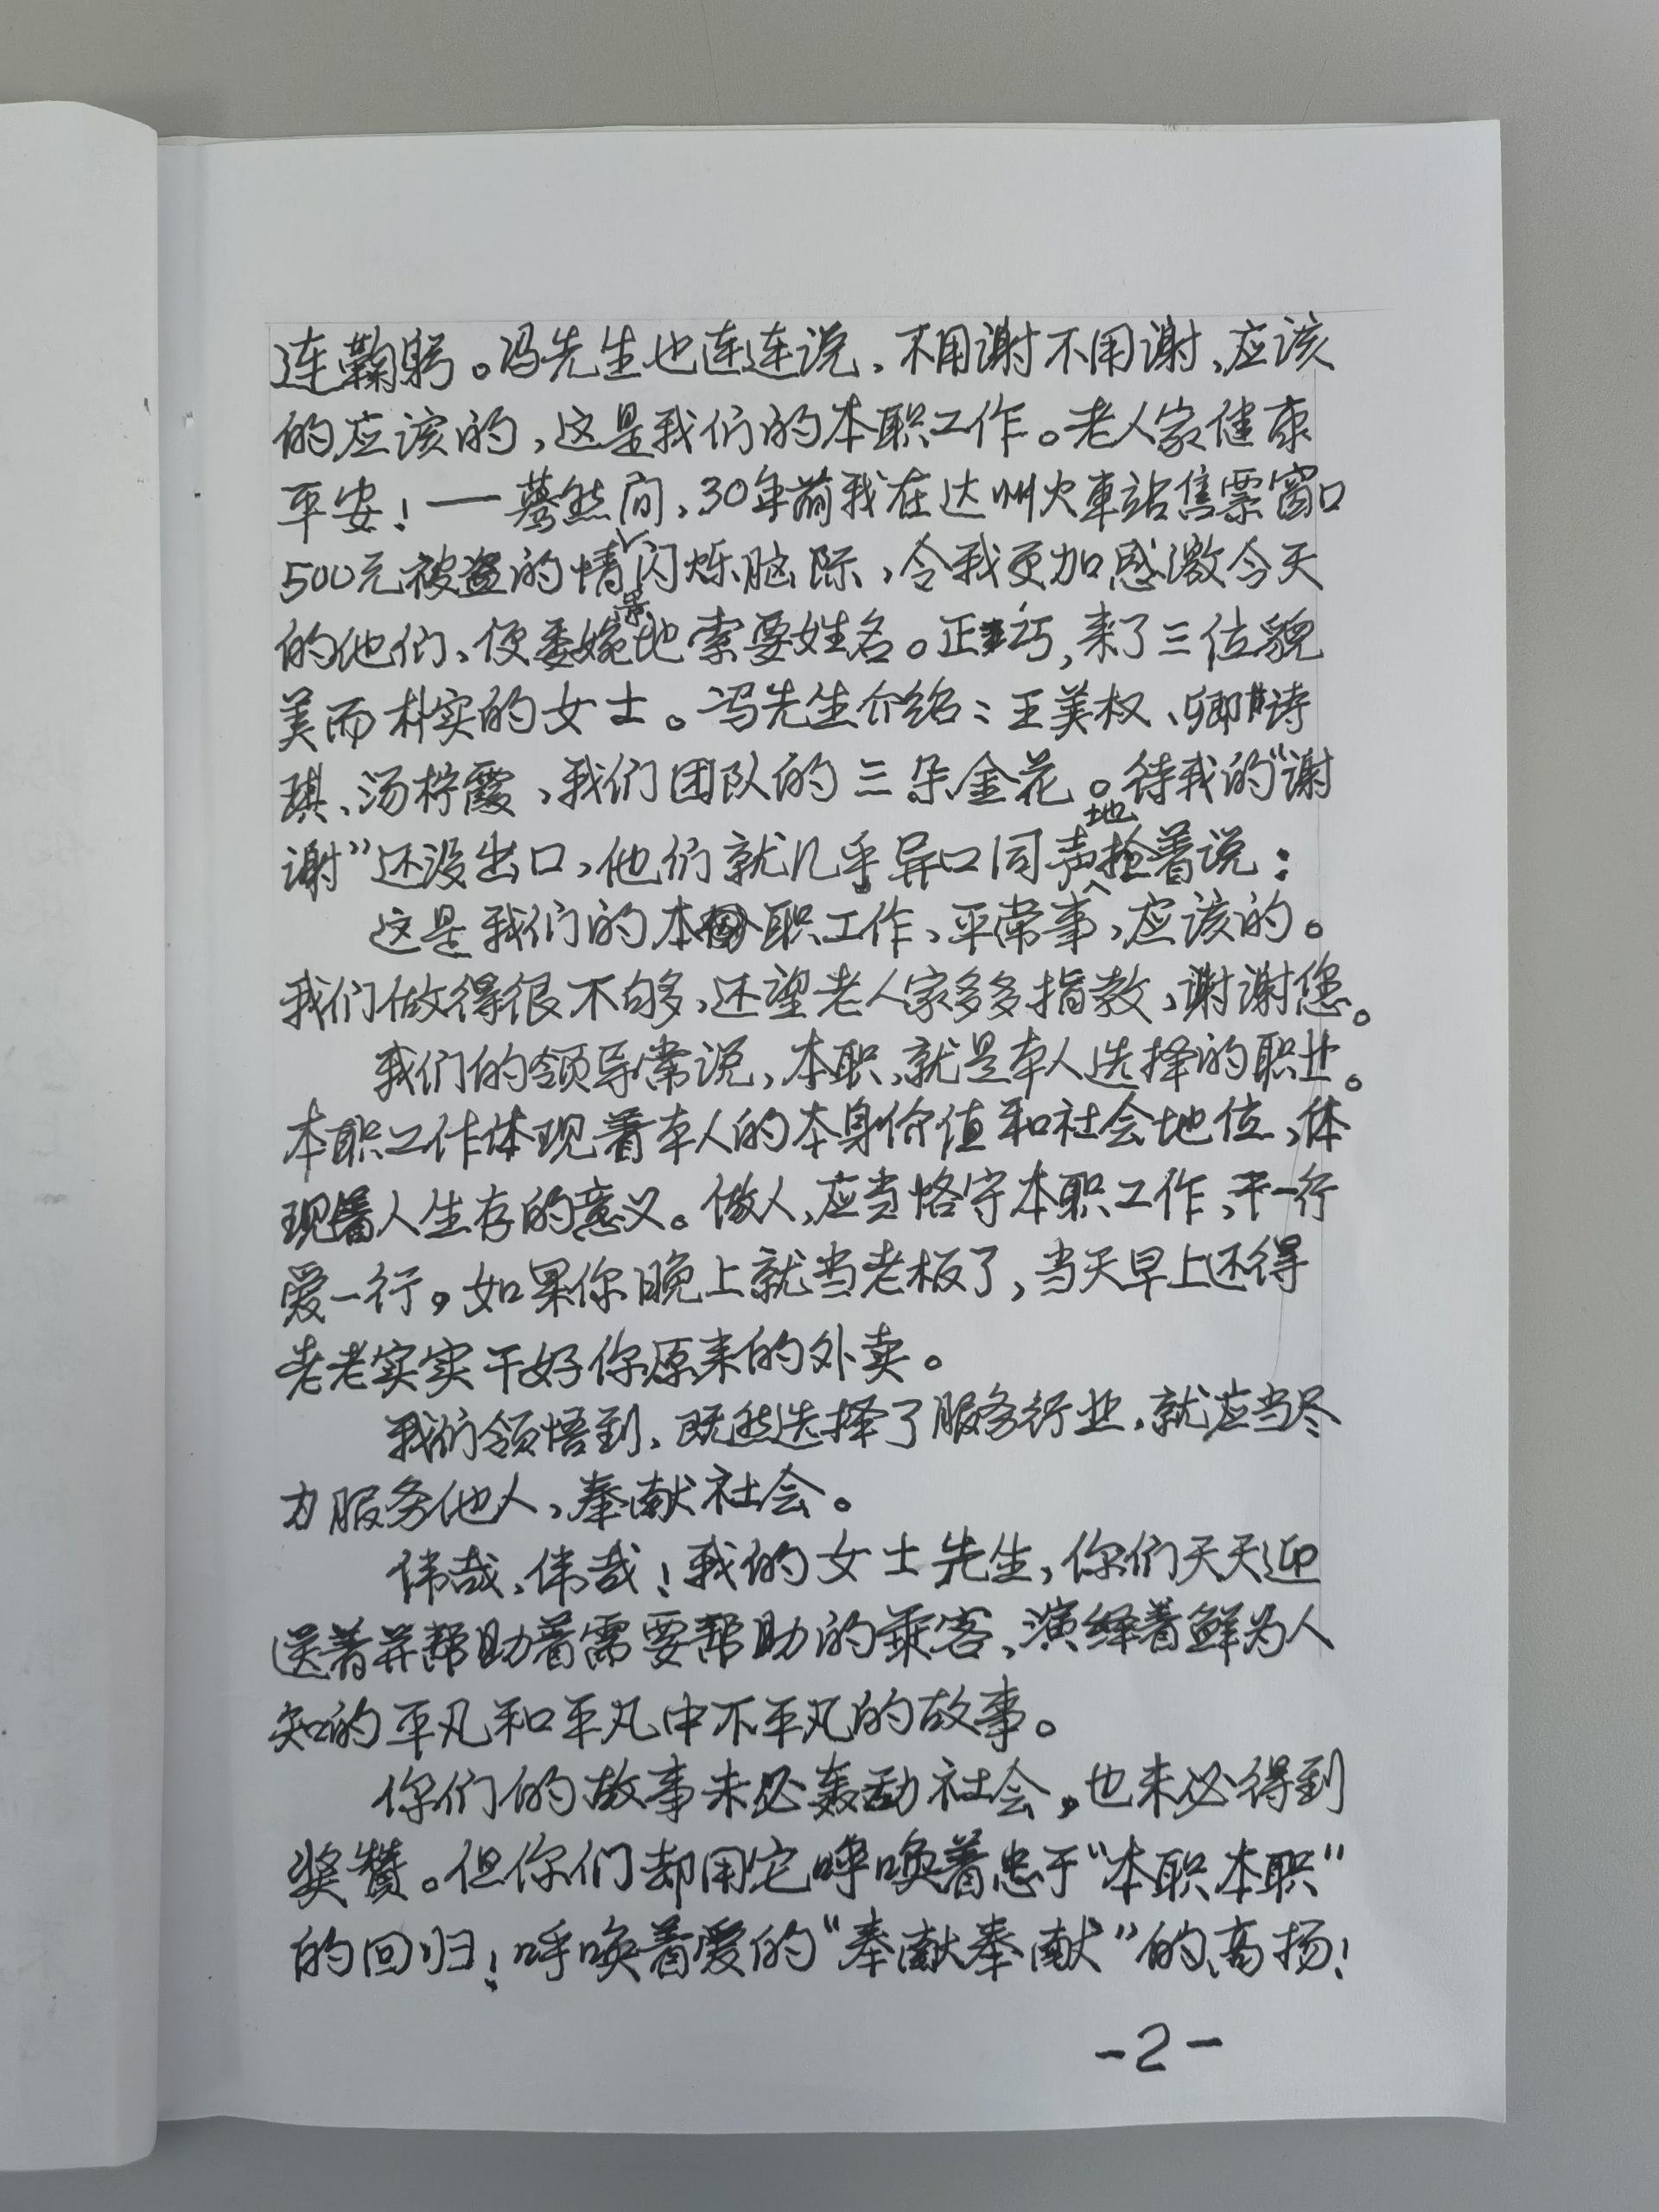 连鞠躬。冯先生也连连说,不用谢不用谢,应该
的应该的,这是我们的本职工作。老人家健康
平安!一蓦然间,30年前我在达州火車站售票窗口
500元被盗的情景闪烁脑际,令我更加感激今天
的他们,便委婉地索要姓名。正巧,来了三位貌
美而朴实的女士。冯先生介绍:王美权、卿诗
琪、汤柠霞,我们团队的三朵金花。待我的“谢
谢”还没出口,他们就几乎异口同声地抢着说:
这是我们的本职工作,平常事,应该的。
我们做得很不够,还望老人家多多指教,谢谢您。
我们的领导常说,本职,就是本人选择的职业。
本职工作体现着本人的本身价值和社会地位,体
现着人生存的意义。做人,应当恪守本职工作,干一行
爱一行。如果你晚上就当老板了,当天早上还得
老老实实干好你原来的外卖。
我们领悟到,既然选择了服务行业,就应当尽
力服务他人,奉献社会。
伟哉,伟哉!我的女士先生,你们天天迎
送着并帮助着需要帮助的乘客,演绎着鲜为人
知的平凡和平凡中不平凡的故事。
你们的故事未必轰动社会,也未必得到
奖赞。但你们却用它呼唤着忠于“本职本职”
的回归!呼唤着爱的“奉献奉献”的高扬!
-2-